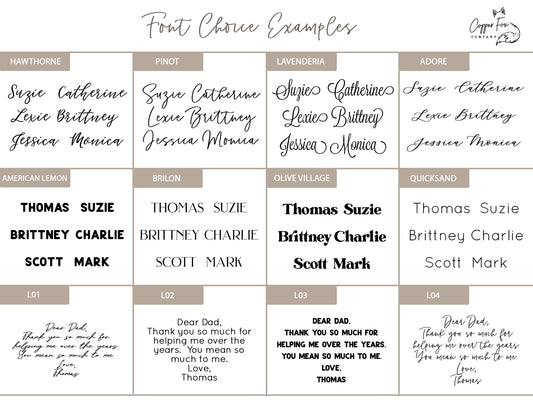 Font Choice Examples
Copper Fox
COMPANY
HAWTHORNE
PINOT
LAVENDERIA
ADORE
Suzie Catherine
Lexie Brittney
Jessica Monica
Suzie Catherine
Lexie Brittney
Jessica Monica
Suzie Catherine
Lexie Brittney
Jessica Monica
Suzie Catherine
Lexie Brittney
Jessica Monica
AMERICAN LEMON
BRILON
OLIVE VILLAGE
QUICKSAND
THOMAS SUZIE
BRITTNEY CHARLIE
SCOTT MARK
THOMAS SUZIE
BRITTNEY CHARLIE
SCOTT MARK
Thomas Suzie
Brittney Charlie
Scott Mark
Thomas Suzie
Brittney Charlie
Scott Mark
L01
L02
L03
L04
Dear Dad,
Thank you so much for
helping me over the years.
You mean so much to me.
Love,
Thomas
Dear Dad,
Thank you so much for
helping me over the
years. You mean so
much to me.
Love,
Thomas
DEAR DAD,
THANK YOU SO MUCH FOR
HELPING ME OVER THE YEARS.
YOU MEAN SO MUCH TO ME.
LOVE,
THOMAS
Dear Dad,
Thank you so much for
helping me over the years.
You mean so much to me.
Love,
Thomas